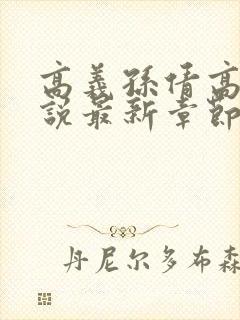 高義孫倩高
說最新章節
丹尼尔多布森